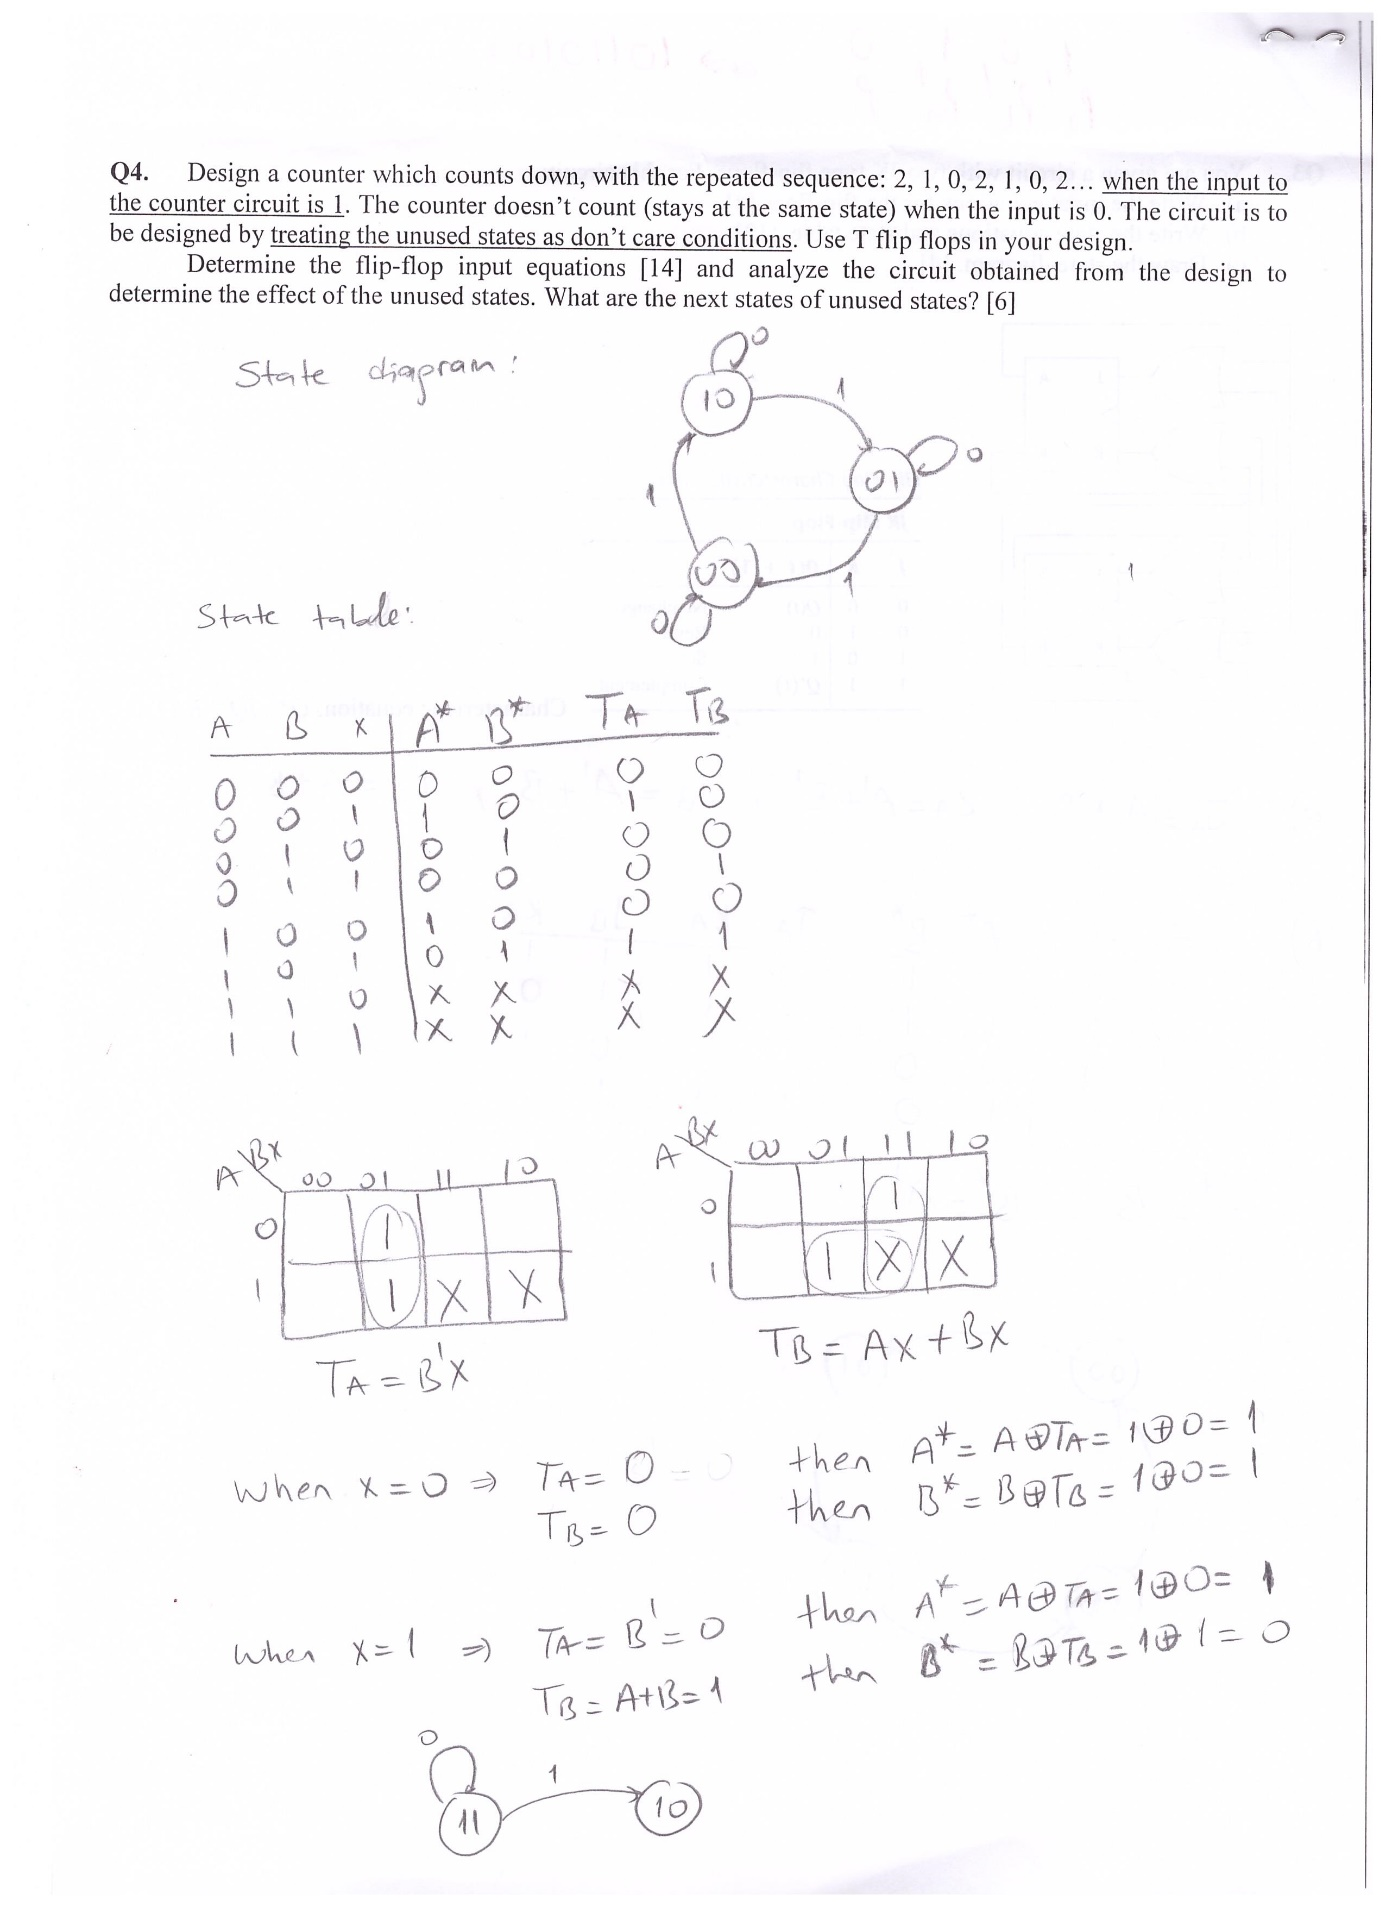 Q4. Design a counter which counts down, with the repeated sequence: 2, 1, 0, 2, 1, 0, 2… when the input to
the counter circuit is 1. The counter doesn't count (stays at the same state) when the input is 0. The circuit is to
be designed by treating the unused states as don't care conditions. Use T flip flops in your design.
Determine the flip-flop input equations [14] and analyze the circuit obtained from the design to
determine the effect of the unused states. What are the next states of unused states? [6]
State diagram:
0
10
1
01
0
1
00
1
0
1
State table:
A B X A* B* TA TB
0 0 0 0 0 0 0
0 0 1 1 0 1 0
0 1 0 0 1 0 0
0 1 1 0 0 0 1
1 0 0 1 0 0 0
1 0 1 0 1 1 1
1 1 0 X X X X
1 1 1 X X X X
A BX 00 01 11 10
0 1
1 1 X X
TA = B'X
A BX 00 01 11 10
0 1
1 1 X X
TB = AX + BX
when X = 0 ⇒ TA = 0 then A* = A⊕TA = 1⊕0 = 1
TB = 0 then B* = B⊕TB = 1⊕0 = 1
when X = 1 ⇒ TA = B' = 0 then A* = A⊕TA = 1⊕0 = 1
TB = A+B = 1 then B* = B⊕TB = 1⊕1 = 0
0
11
1
10